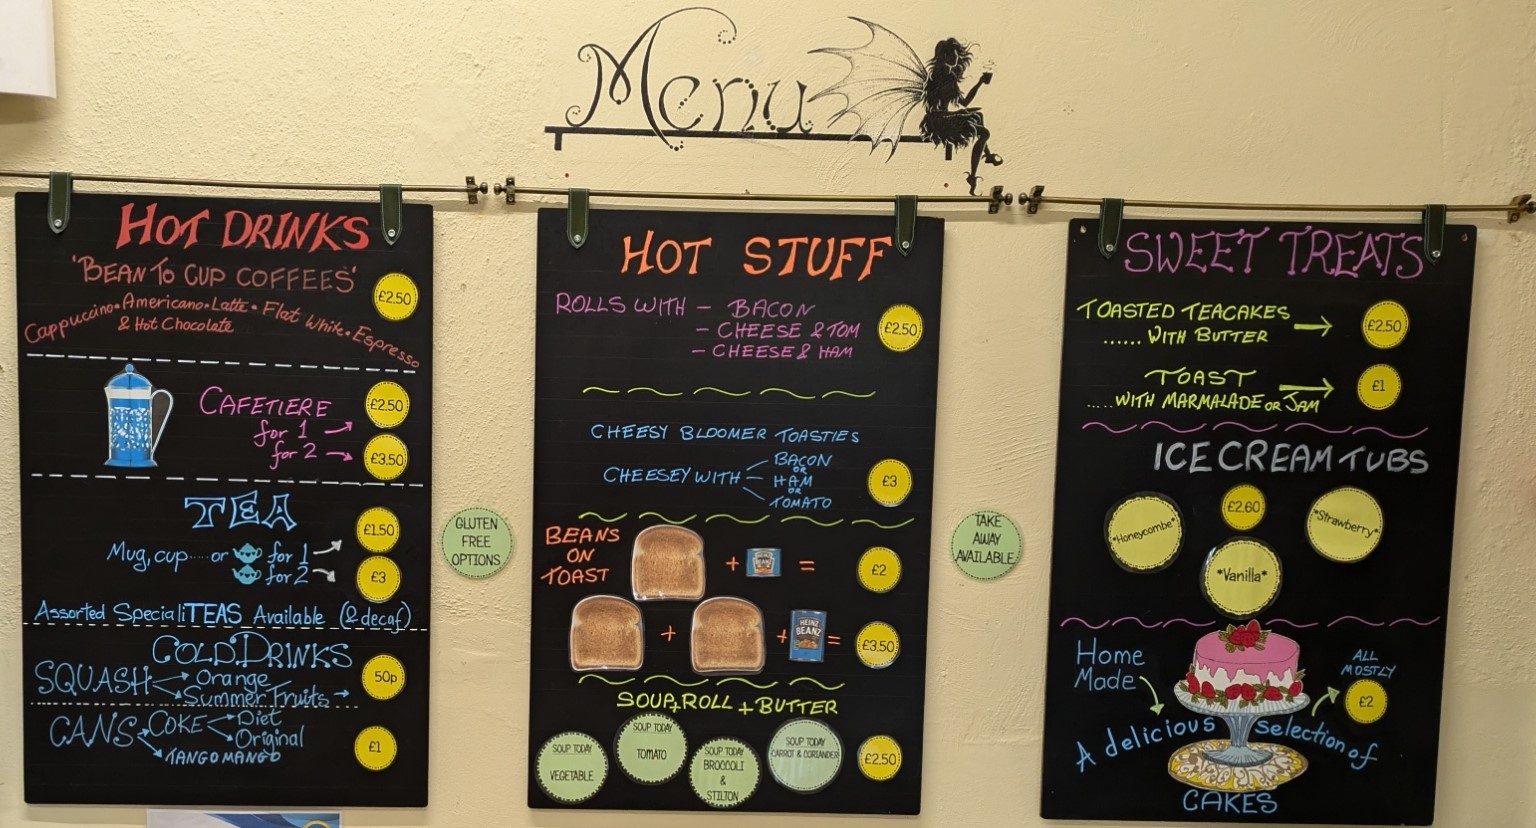 Menu
HOT DRINKS
'BEAN TO CUP COFFEES'
£2.50
Cappuccino • Americano • Latte • Flat White • Espresso
& Hot Chocolate
CAFETIERE
£2.50
for 1
for 2
£3.50
TEA
£1.50
Mug, cup ..... or for 1
for 2
£3
Assorted SpecialiTEAS Available (& decaf)
COLD DRINKS
SQUASH Orange
Summer Fruits
50p
CANS COKE Diet
Original
TANGO MANGO
£1
GLUTEN
FREE
OPTIONS
HOT STUFF
ROLLS WITH - BACON
- CHEESE & TOM
- CHEESE & HAM
£2.50
CHEESY BLOOMER TOASTIES
CHEESEY WITH BACON
OR
HAM
OR
TOMATO
£3
BEANS
ON
TOAST
+ =
£2
+ + HEINZ
BEANZ =
£3.50
SOUP + ROLL + BUTTER
SOUP TODAY
VEGETABLE
SOUP TODAY
TOMATO
SOUP TODAY
BROCCOLI
&
STILTON
SOUP TODAY
CARROT & CORIANDER
£2.50
TAKE
AWAY
AVAILABLE
SWEET TREATS
TOASTED TEACAKES
...... WITH BUTTER
£2.50
TOAST
..... WITH MARMALADE OR JAM
£1
ICE CREAM TUBS
£2.60
*Honeycombe*
*Vanilla*
*Strawberry*
Home
Made
ALL
MOSTLY
£2
A delicious selection of
CAKES